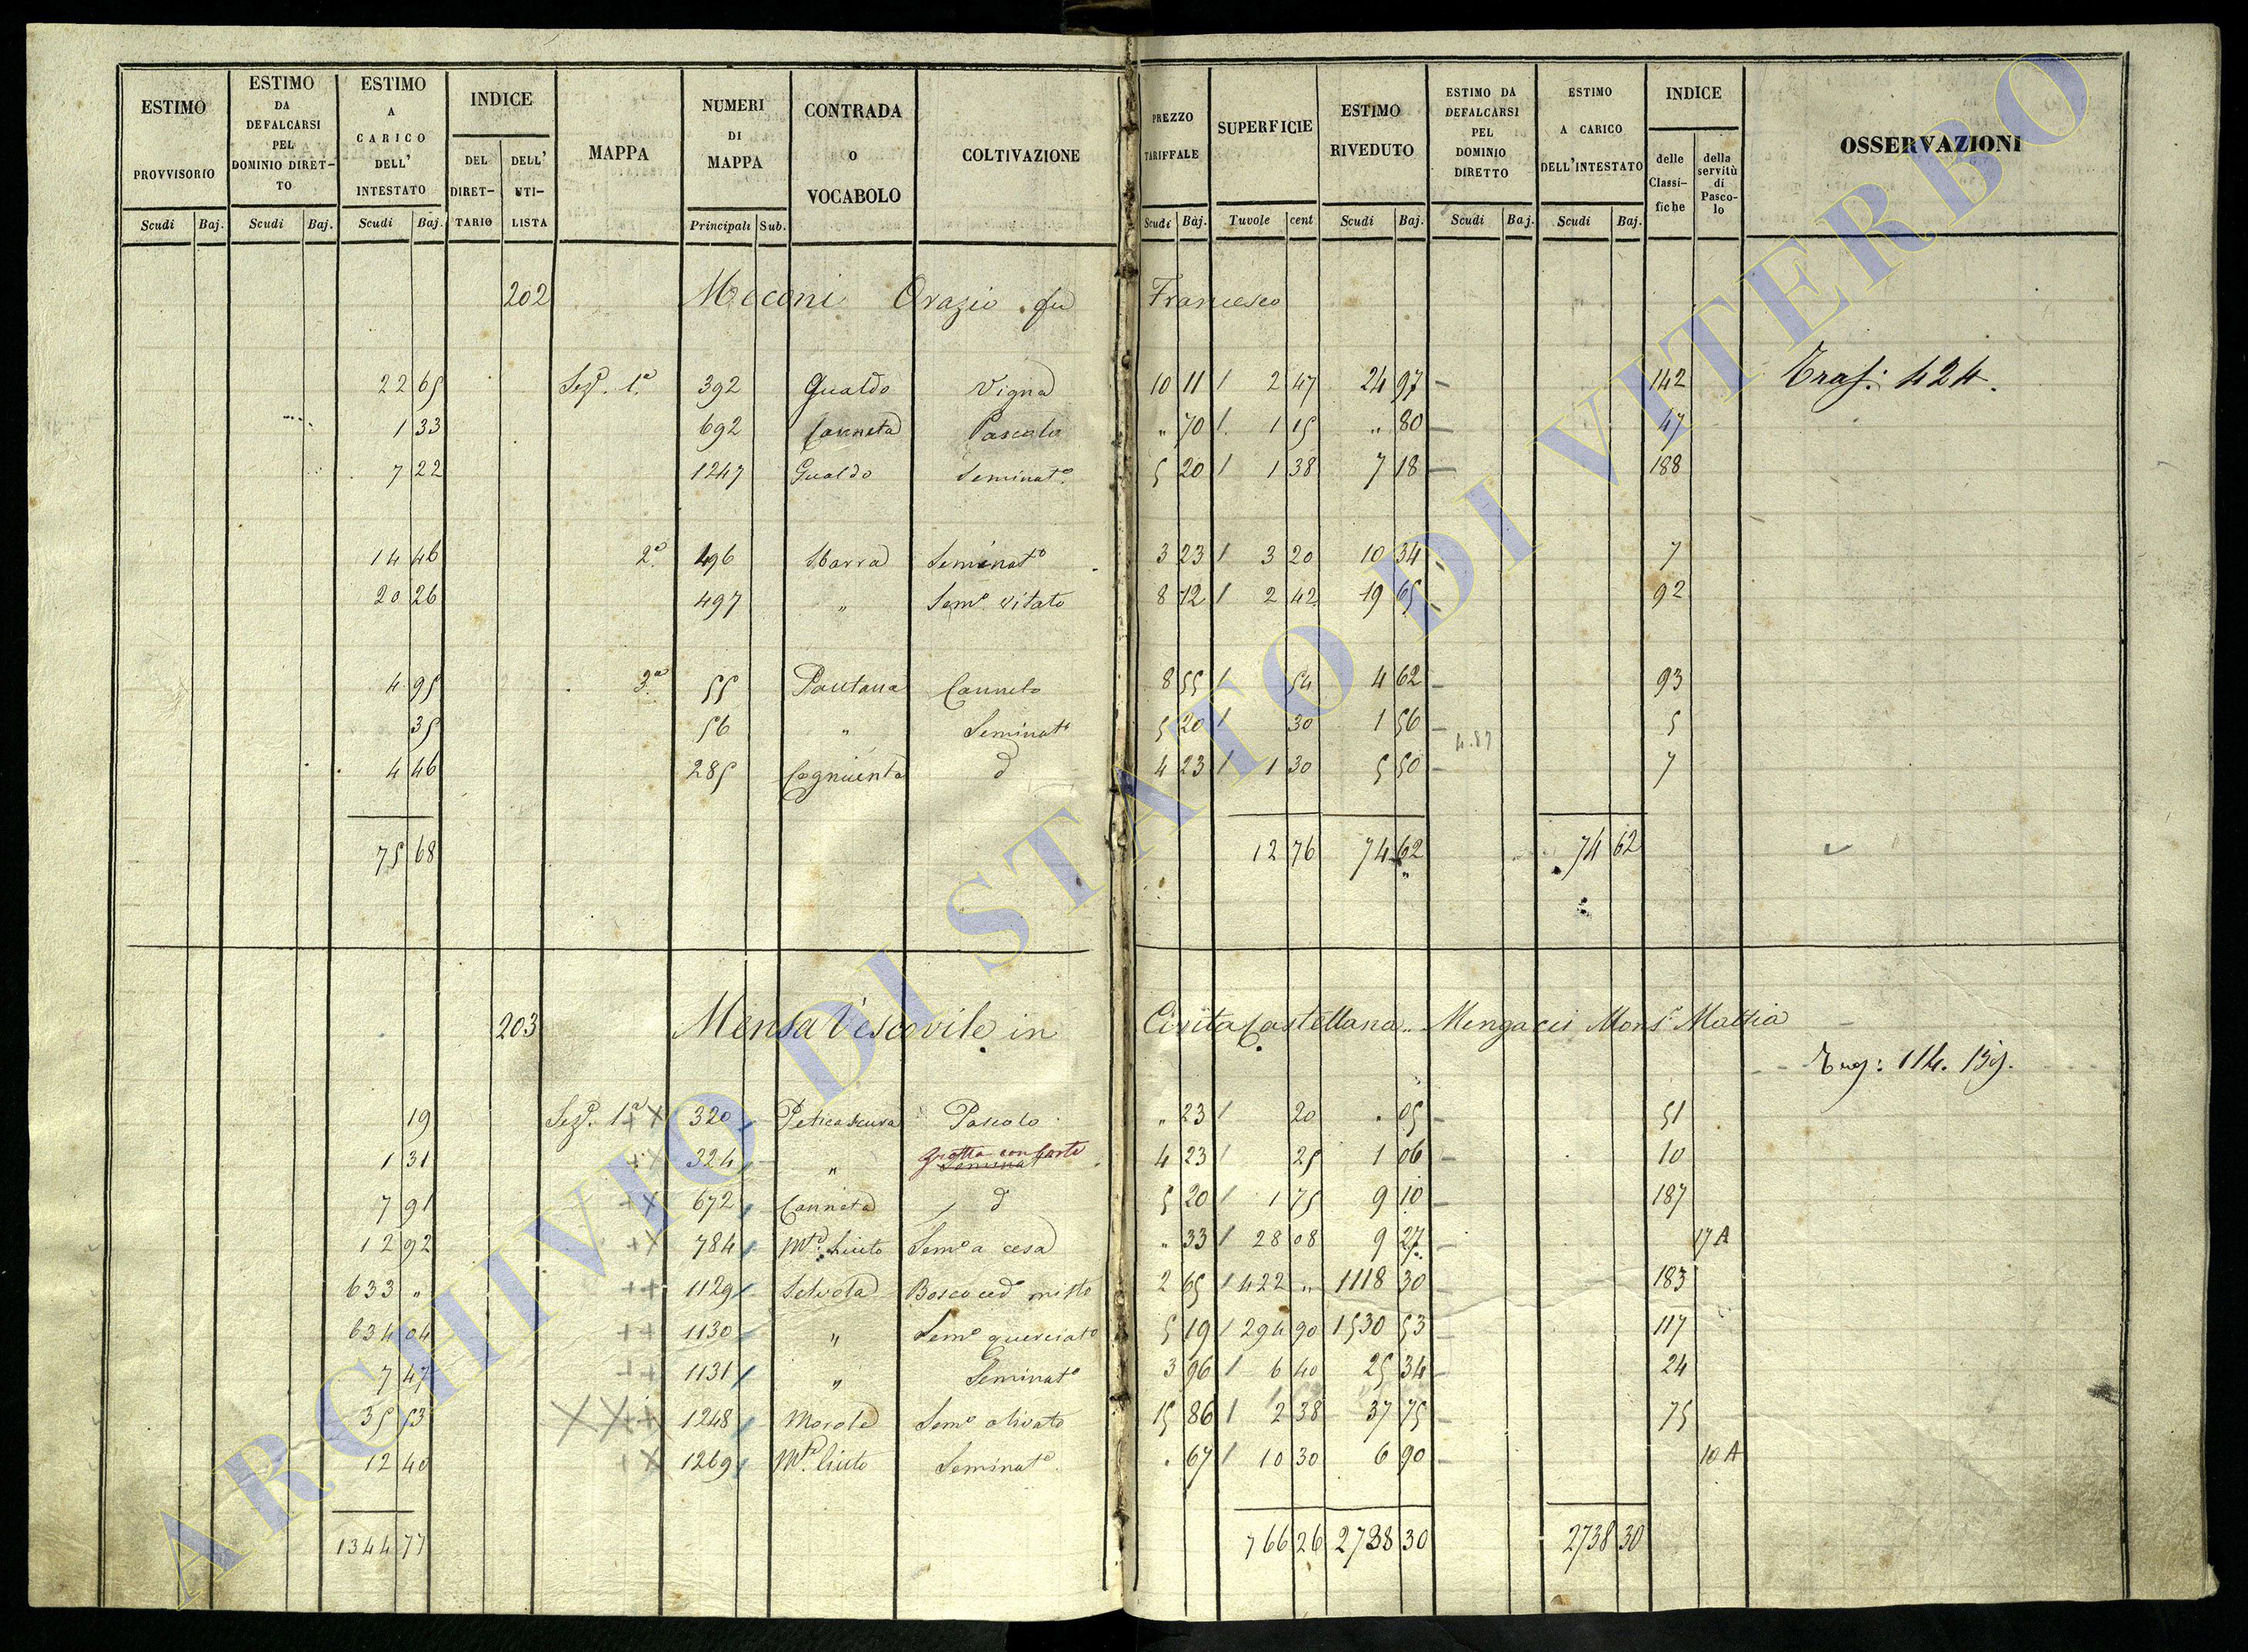 ESTIMO PROVVISORIO
ESTIMO DA DEFALCARSI PEL DOMINIO DIRET- TO
ESTIMO A CARICO DELL' INTESTATO
INDICE
DEL DIRET- TARIO
DELL' UTI- LISTA
MAPPA
NUMERI DI MAPPA
CONTRADA O VOCABOLO
COLTIVAZIONE
PREZZO TARIFFALE
SUPERFICIE
ESTIMO RIVEDUTO
ESTIMO DA DEFALCARSI PEL DOMINIO DIRETTO
ESTIMO A CARICO DELL'INTESTATO
INDICE
delle Classi- fiche
della servitù di Pasco- lo
OSSERVAZIONI
Scudi Baj. Scudi Baj. Scudi Baj. Principali Sub. Scudi Baj. Tavole cent Scudi Baj. Scudi Baj. Scudi Baj.
202 Meconi Orazio fu Francesco
22 65 Sez. 1a 392 Gualdo Vigna 10 11 / 2 47 24 97 142 Tras: 424.
1 33 692 Canneta Pascolo " 70 / 1 15 " 80 47
7 22 1247 Gualdo Seminato 5 20 / 1 38 7 18 188
14 46 2a 496 Seminato 3 23 / 3 20 10 34 7
20 26 497 " Semo vitato 8 12 / 2 42 19 65 92
4 95 3a 55 Pantana Canneto 8 55 / 54 4 62 93
35 56 " Seminato 5 20 / 30 1 56 5
4.87
4 46 285 d 4 23 / 1 30 5 50 7
75 68 12 76 74 62 74 62
203 Mensa Vescovile in Civita Castellana Mengacci Monsr Mattia
19 Sez. 1a + x 320 Pascolo " 23 / 20 " 05 51
1 31 + x 324 " grotta con Seminat 4 23 / 25 1 06 10
7 91 + x 672 Canneta d 5 20 / 1 75 9 10 187
12 92 + x 784 Semo a cesa " 33 / 28 08 9 27 17 A
633 " + + 1129 Selvota Bosco ced misto 2 65 / 422 " 1118 30 183
634 04 + + 1130 " Semo querciato 5 19 / 294 90 1530 53 117
7 47 + + 1131 " Seminato 3 96 / 6 40 25 34 24
35 53 X X + + 1248 Semo olivato 15 86 / 2 38 37 75 75
12 40 + x 1269 Seminato " 67 / 10 30 6 90 10 A
1344 77 766 26 2738 30 2738 30
ARCHIVIO DI STATO DI VITERBO